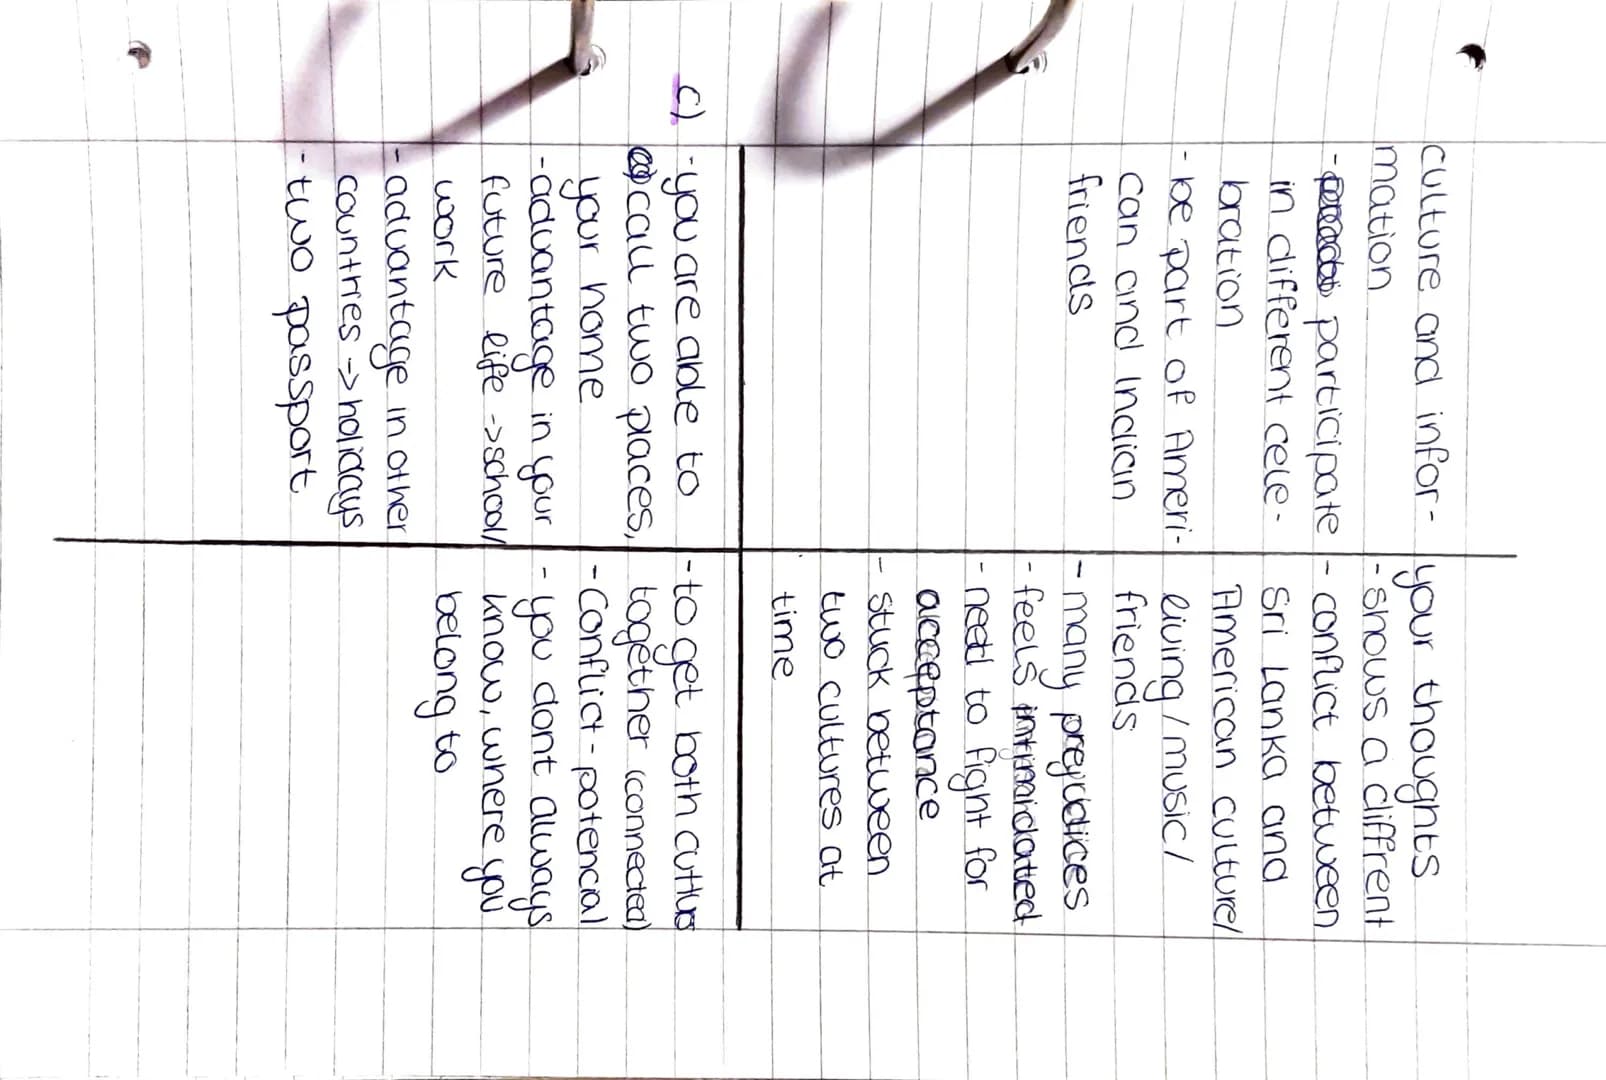 culture and infor-
mation
- participate
in different cele-
bration
- be part of Ameri-
can and Indian
friends
your thoughts
- shows a diffrent
- conflict between
Sri Lanka and
American culture/
living/music/
friends
- many prejudices
- feels intimidated
- need to fight for
acceptance
- stuck between
two cultures at
time
c) - you are able to
call two places,
your home
- advantage in your
future life -> school/
work
- advantage in other
countries -> holidays
- two passport
- to get both
together (connected)
- Conflict - potencial
- you dont always
know, where you
belong to